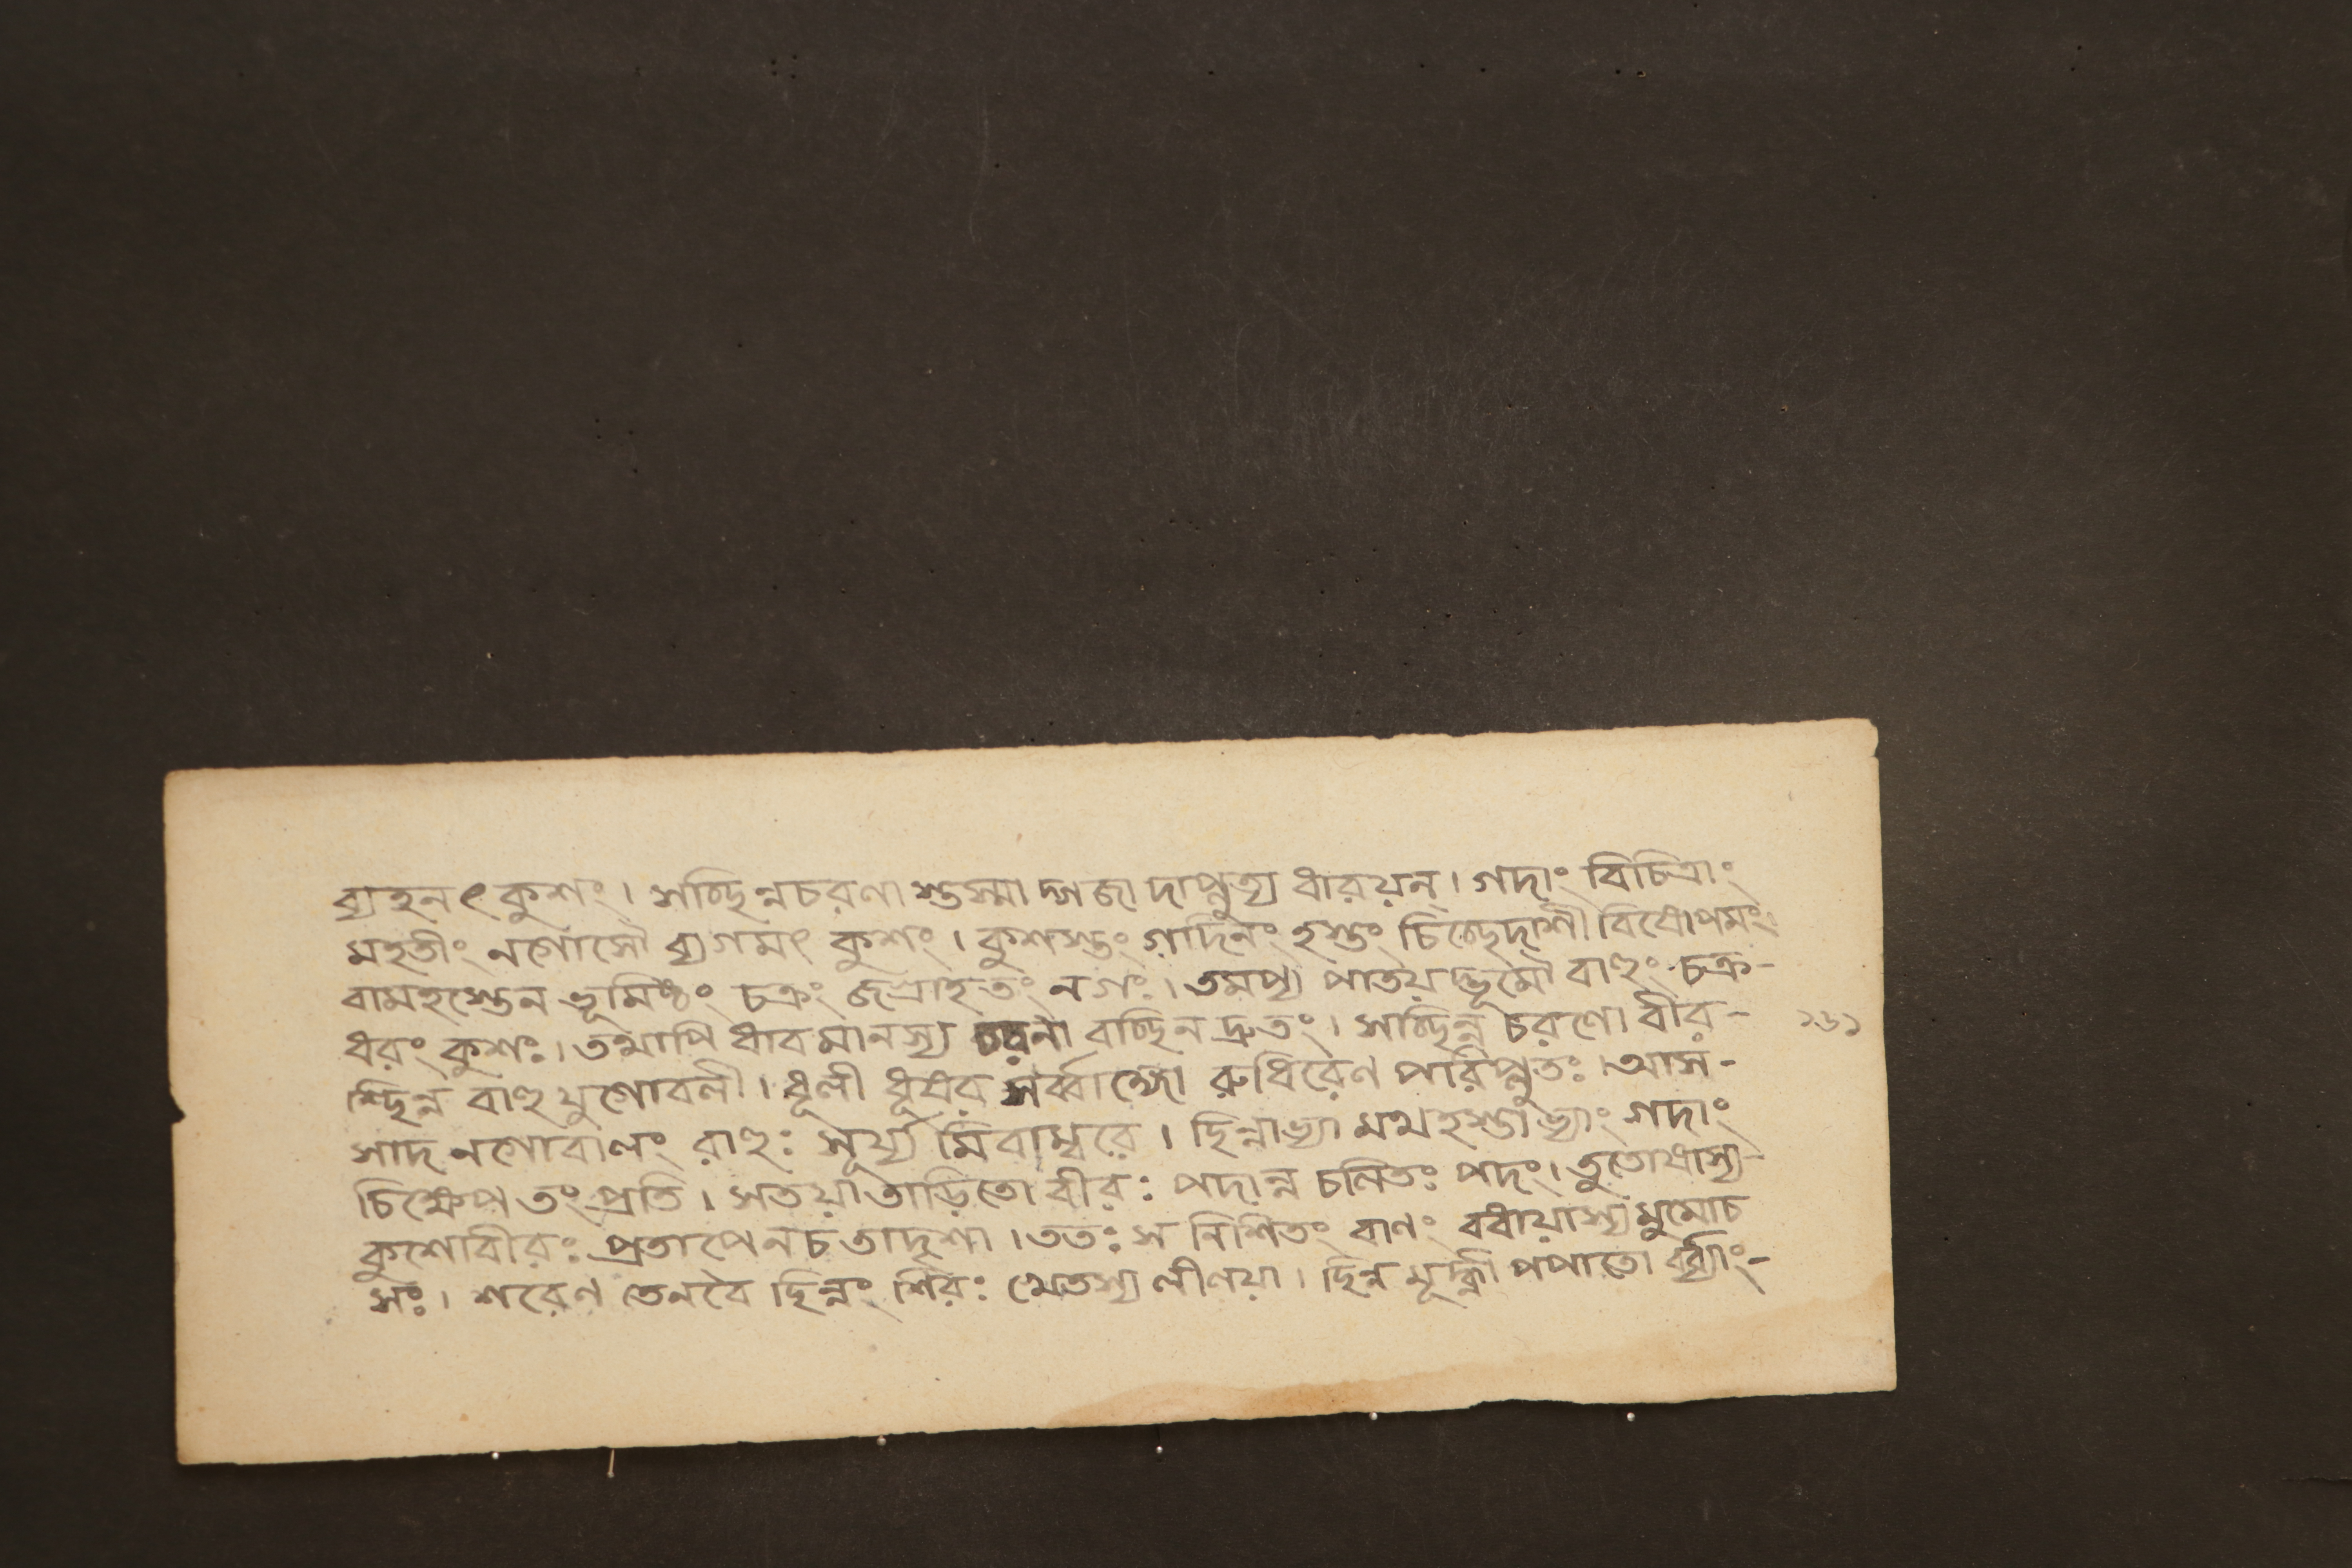 ব্যহনৎ কুশং। সচ্ছিন্নচরণা স্তস্মা দ্গজা দাপ্লুত্য ধারয়ন্। গদাং বিচিত্রাং
মহতীং নলোসৌ ব্যগমৎ কুশং। কুশস্তং গাদিনং হস্তং চিচ্ছেদাশী বিষোপমং।
বামহস্তেন ভূমিষ্ঠং চক্রং জগ্রাহ তং নলঃ। তমপ্য পাতয়দ্ভূমৌ বাহুং চক্র-
ধরং কুশঃ। তথাপি ধাবমানস্য চরনা বচ্ছিন দ্রুতং। সচ্ছিন্ন চরণো বীর-
শ্ছিন্ন বাহুযুগোবলী। ধূলী ধূষর সর্ব্বাঙ্গো রুধিরেণ পরিপ্লুতঃ। আস-
সাদ নলোবালং রাহুঃ সূর্য্য মিবাম্বরে। ছিন্নাভ্যা মথহস্তাভ্যাং গদাং
চিক্ষেপ তং প্রতি। সতয়া তাড়িতো বীরঃ পদান্ন চলিতঃ পদং। তুতোষাস্য
কুশোবীরঃ প্রতাপেনচ তাদৃশা। ততঃ স নিশিতং বাণং বধায়াস্য মুমোচ
সঃ। শরেণ তেনবৈ ছিন্নং শিরঃ খেতস্য লীলয়া। ছিন্ন মূর্দ্ধা পপাতো র্ব্ব্যাং-
১৬১